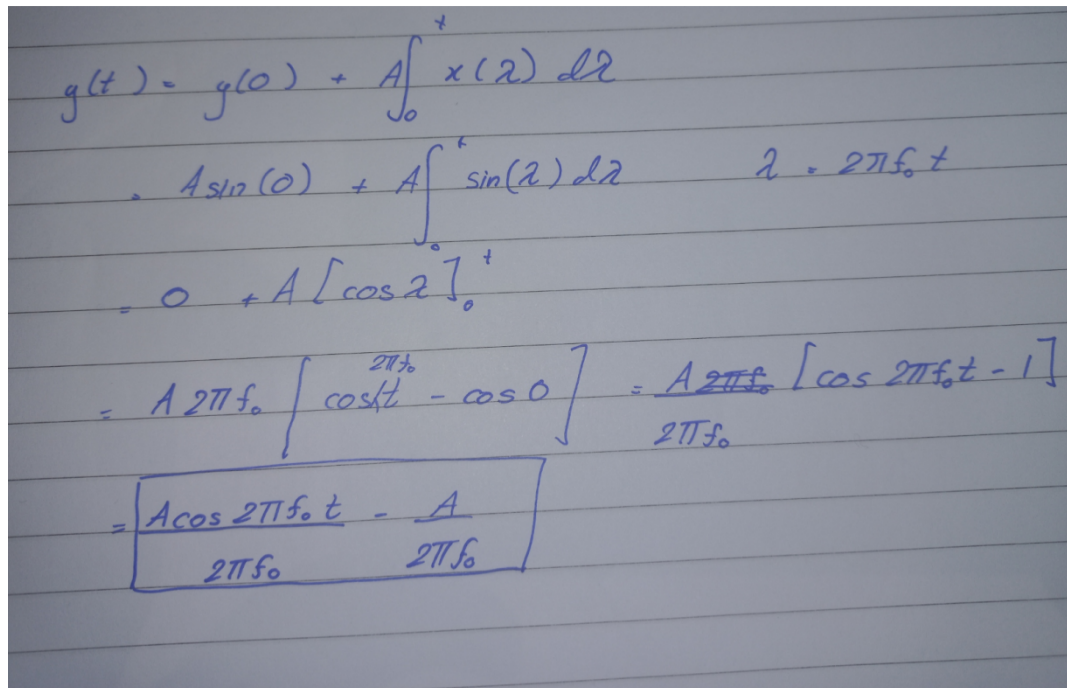 y(t) = y(0) + A∫₀ᵗ x(λ) dλ
= A sin(0) + A∫₀ᵗ sin(λ) dλ λ = 2πf₀t
= 0 + A [cos λ]₀ᵗ
= A 2πf₀ [cos 2πf₀t - cos 0] = A 2πf₀/2πf₀ [cos 2πf₀t - 1]
= A cos 2πf₀t/2πf₀ - A/2πf₀